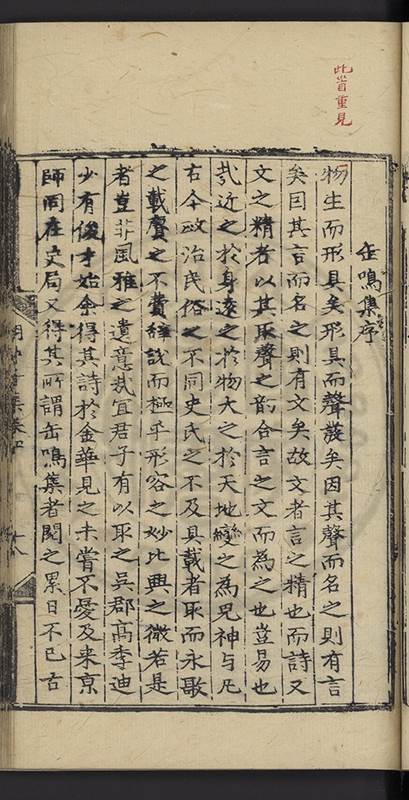 此首重見
缶鳴集序
物生而形具矣形具而聲發矣因其聲而名之則有言
矣因其言而名之則有文矣故文者言之精也而詩又
文之精者以其取聲之韵合言之文而為之也豈易也
㢤近之於身遠之於物大之於天地變之為鬼神与凡
古今政治民俗之不同史氏之不及具載者取而永歌
之載賡之不費辞說而極乎形容之妙比興之微若是
者豈非風雅之遺意㢤冝君子有以取之吳郡高李迪
少有俊才始余得其詩於金華見之未嘗不愛及来京
師同在史局又得其所謂缶鳴集者閱之累日不已古